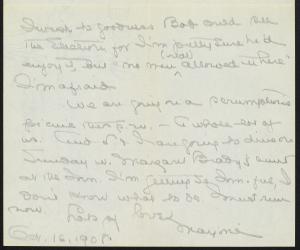 I wish to goodness Bob could see
the election for I'm pretty sure he'd
enjoy it, but "no men (real) allowed in here"
I'm afraid.
We are going on a scrumptious
picnic this p.m. — A whole lot of
us. And I am going to dinner
Sunday w. Margaret Brady's aunt
at the Inn. I'm getting so, I
don't know what to do. Must run
now. Lots of love
Oct. 16, 1908